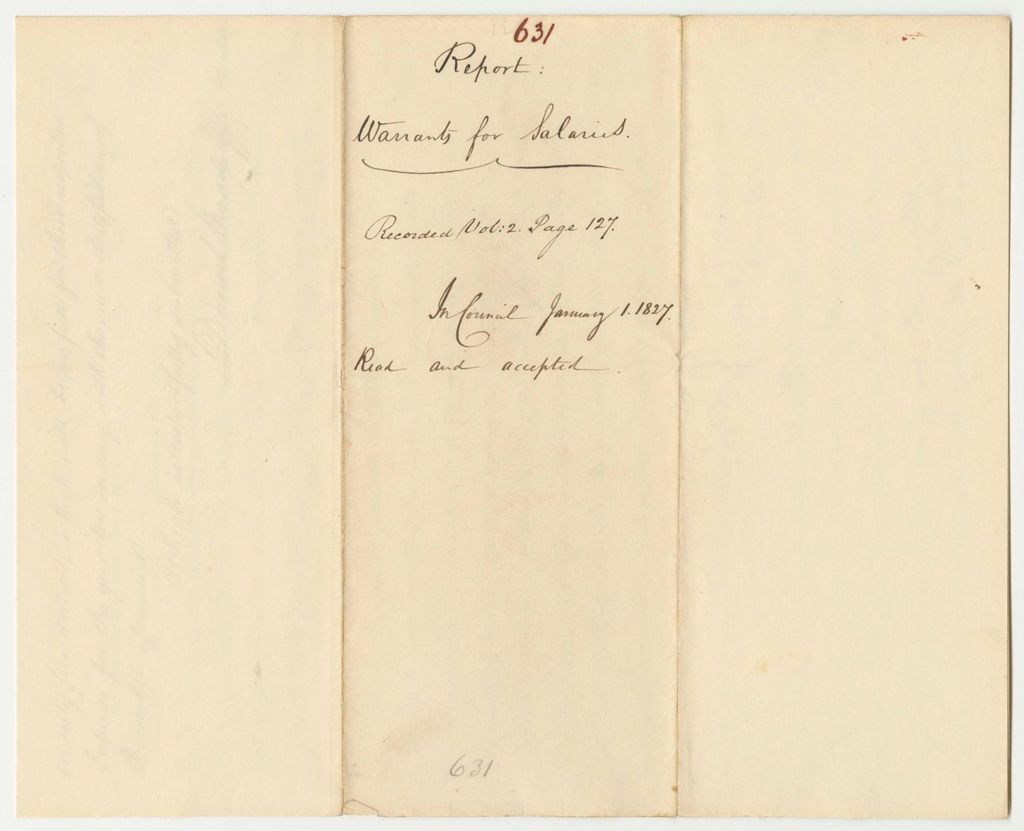 631
Report:
Warrants for Salaries.
Recorded Vol: 2. Page 127.
In Council January 1. 1827.
Read and accepted.
631